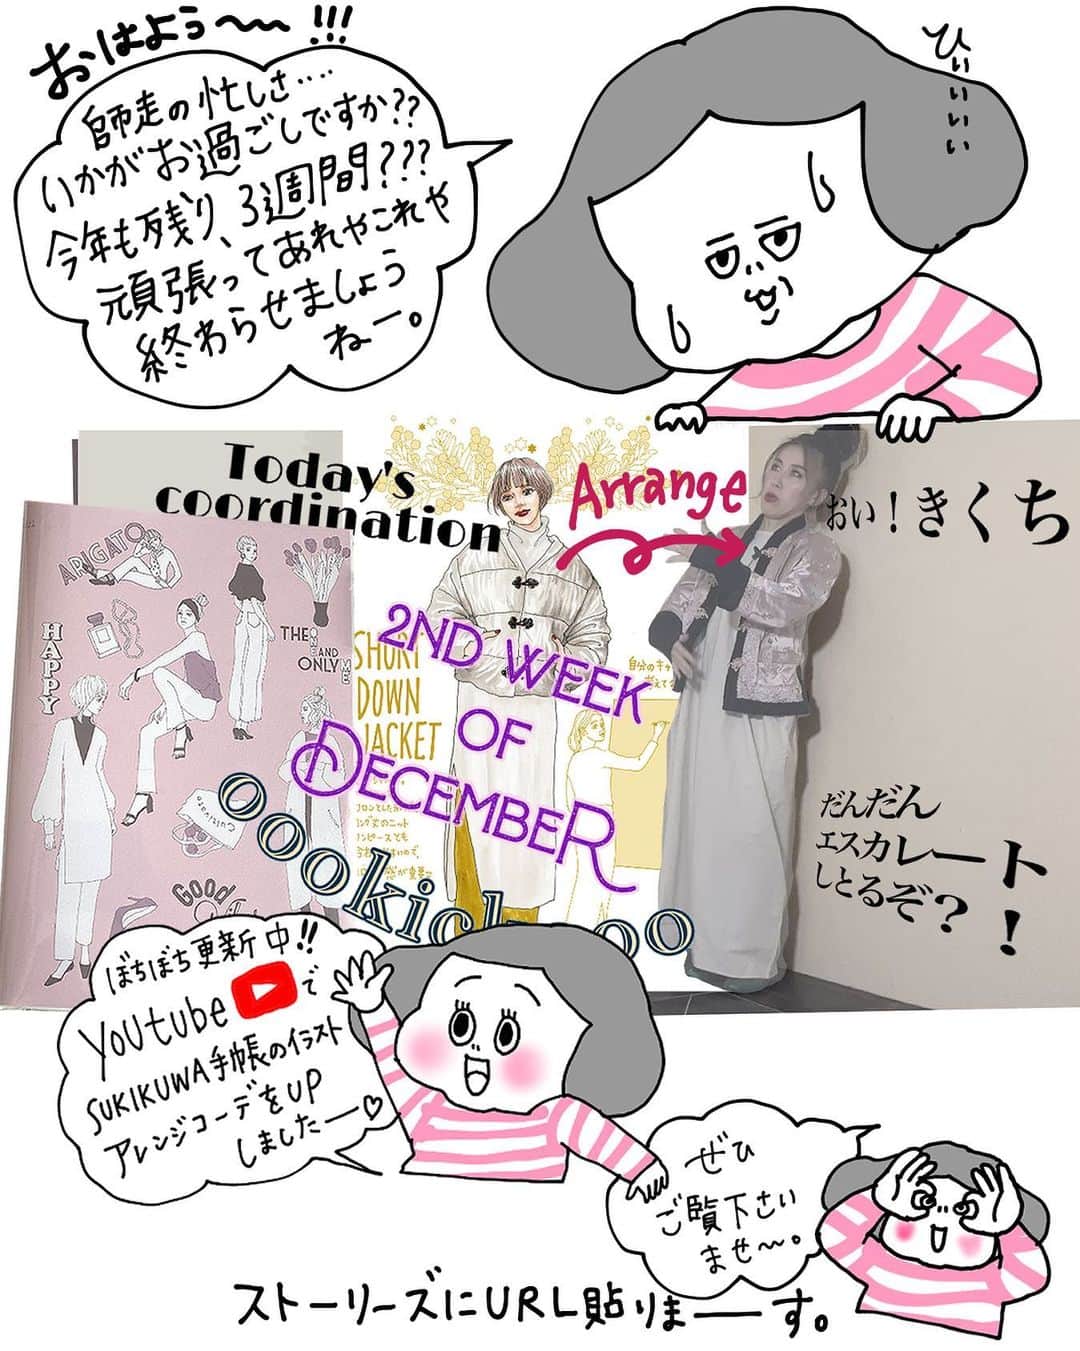 おはよう〜〜!!!
師走の忙しさ‥‥
いかがお過ごしですか??
今年も残り、3週間???
頑張ってあれやこれや
終わらせましょう
ねー。
ひぃぃぃぃ
Today's
coordination
Arrange
おい!きくち
ARIGATO
HAPPY
THE
ONE
AND
ONLY
ME
Good
SHORT
DOWN
JACKET
2ND WEEK
OF
DECEMBER
自分のキャ
だんだん
エスカレート
しとるぞ?!
ぼちぼち更新中!!
YOUtubeで
SUKIKUWA手帳のイラスト
アレンジコーデをUP
しましたー♡
ぜひ
ご覧下さい
ませ〜。
ストーリーズにURL貼りまーーす。